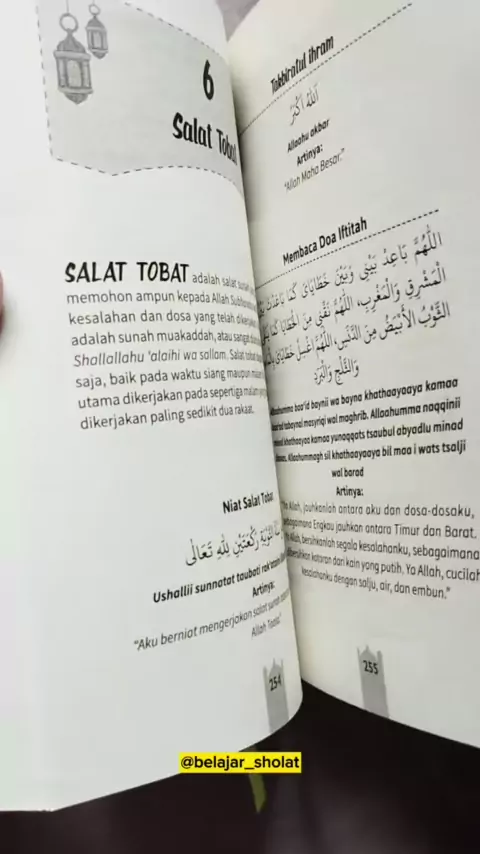 6
Salat Tobat
SALAT TOBAT adalah salat sunah
memohon ampun kepada Allah
kesalahan dan dosa yang telah
adalah sunah muakaddah, atau
Shallallahu 'alaihi wa sallam. Salat
saja, baik pada waktu siang maupun
utama dikerjakan pada sepertiga malam
dikerjakan paling sedikit dua rakaat.
Niat Salat Tobat
التَّوْبَةِ رَكْعَتَيْنِ لِلّٰهِ تَعَالَى
Ushallii sunnatat taubati
Artinya:
"Aku berniat mengerjakan salat
Allah Taala."
254
Takbiratul ihram
اَللّٰهُ اَكْبَرُ
Allaahu akbar
Artinya:
"Allah Maha Besar."
Membaca Doa Iftitah
اَللّٰهُمَّ بَاعِدْ بَيْنِي وَبَيْنَ خَطَايَايَ كَمَا بَاعَدْتَ
الْمَشْرِقِ وَالْمَغْرِبِ، اَللّٰهُمَّ نَقِّنِي مِنَ الْخَطَايَا كَمَا
الثَّوْبُ الْأَبْيَضُ مِنَ الدَّنَسِ، اَللّٰهُمَّ اغْسِلْ خَطَايَايَ
وَالثَّلْجِ وَالْبَرَدِ
baa'id baynii wa bayna khathaayaaya kamaa
baynal masyriqi wal maghrib. Allaahumma naqqinii
khathaayaaya kamaa yunaqqats tsaubul abyadlu minad
Allaahummagh sil khathaayaaya bil maa i wats tsalji
wal barad
Artinya:
Allah, jauhkanlah antara aku dan dosa-dosaku,
sebagaimana Engkau jauhkan antara Timur dan Barat.
Allah, bersihkanlah segala kesalahanku, sebagaimana
kotoran dari kain yang putih. Ya Allah, cucilah
kesalahanku dengan salju, air, dan embun."
255
@belajar_sholat